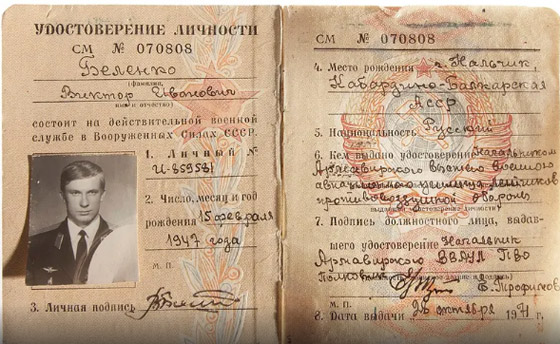 УДОСТОВЕРЕНИЕ ЛИЧНОСТИ
СМ № 070808
Беленко
(фамилия,
Виктор Иванович
имя и отчество)
состоит на действительной военной
службе в Вооруженных Силах СССР.
1. Личный №
И-859581
2. Число, месяц и год
рождения 15 февраля
1947 года
М. П.
3. Личная подпись
СМ № 070808
4. Место рождения г. Нальчик,
Кабардино-Балкарская
АССР
5. Национальность Русский
6. Кем выдано удостоверение Начальником
Армавирского высшего военного
авиационного училища летчиков
противовоздушной обороны
7. Подпись должностного лица, выдав-
шего удостоверение Начальник
Армавирского ВВАУЛ ПВО
Полковник Е. Трофимов
М. П.
8. Дата выдачи октября 1971 г.